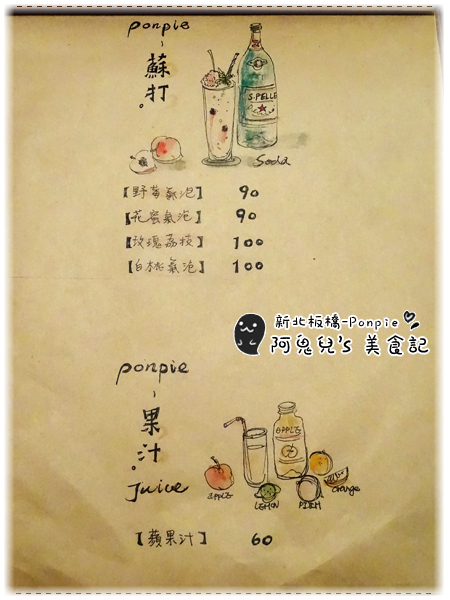 ponpie
蘇打。
S.PELLE
Soda
【野莓氣泡】 90
【花蜜氣泡】 90
【玫瑰荔枝】 100
【白桃氣泡】 100
新北板橋-Ponpie
阿鬼兒's 美食記
ponpie
果汁。
Juice
APPLE
APPLE
LEMON
orange
【蘋果汁】 60